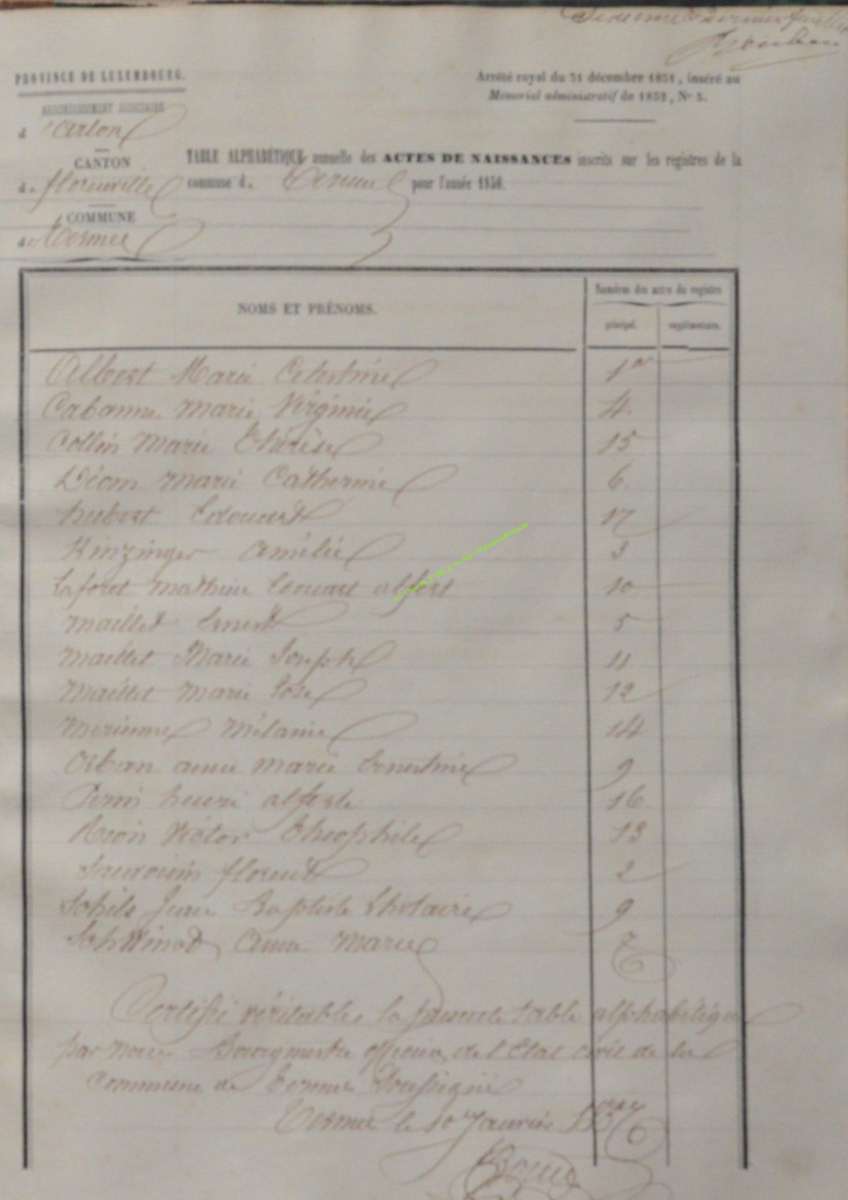 Deuxième & dernier feuillet
PROVINCE DE LUXEMBOURG.
Arrêté royal du 31 décembre 1851, inséré au
Mémorial administratif de 1852, N° 5.
ARRONDISSEMENT JUDICIAIRE
d'Arlon
CANTON
de florenville
COMMUNE
de Termes
TABLE ALPHABÉTIQUE annuelle des ACTES DE NAISSANCES inscrits sur les registres de la
commune de Termes pour l'année 1856.
NOMS ET PRÉNOMS.
Numéros des actes du registre
principal. supplémentaire.
Albert Marie Celestine 1er
Marie Virginie 4.
Collin Marie Thérèse 15
Déom marie Catherine 6.
hubert Edouard 17
Kinzinger Amélie 3
Laforet Mathieu Edouart alfert 10
maillet Ernest 5
maillet Marie Joseph 11
Maillet marie Rose 12
Mélanie 14
Orban anne marie Ernestine 9
henri 16
Réon Victor Théophile 13
florent 2
Jean Baptiste 9
Anna Marie 7
Certifié véritable, la présente table alphabétique
par nous Bourgmestre officier de l'Etat civil de la
Commune de Termes Soussigné
Termes le 10 Janvier